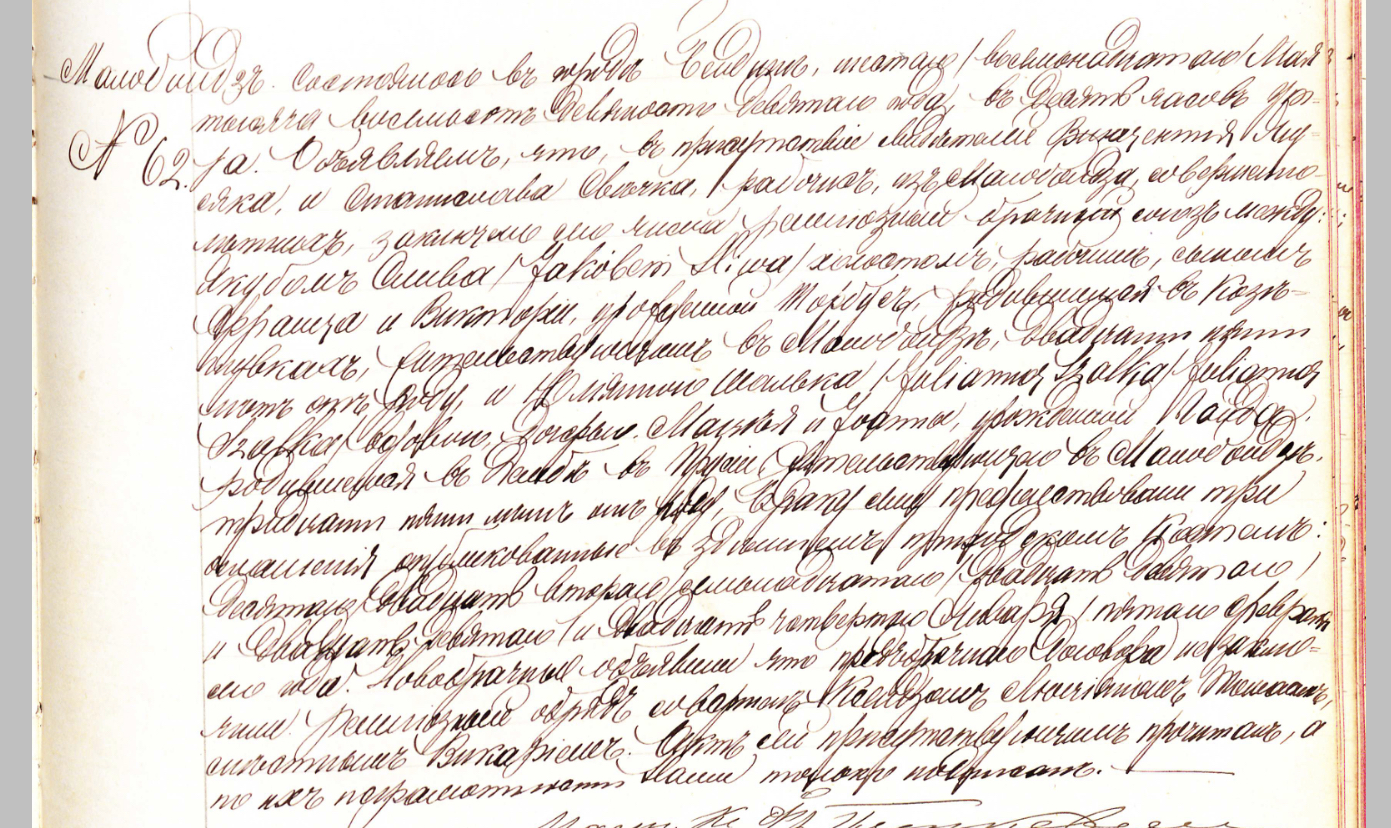 Малобондзъ. Состоялось въ городѣ Бендинѣ, шестаго /восемнадцатаго/ Мая
№ 62.
тысяча восемьсотъ девяносто девятаго года, въ десять часовъ ут-
ра. Объявляемъ, что, въ присутствіи свидѣтелей Викентія
сяка, и Станислава Свѣчка, рабочихъ, изъ Малобондза, совершенно-
лѣтнихъ, заключенъ сего числа религіозный брачный союзъ между:
Якубомъ Слива /Jakóbem Śliwa/ холостымъ, рабочимъ, сыномъ
Францa и Викторіи, урожденной родившимся въ Козъ-
ловкахъ, жительствующимъ въ Малобондзѣ, двадцати пяти
лѣтъ отъ роду, и Юліанною Шалька /Julianną Szałka/ Julianną
Szałka/ вдовою, дочерью и урожденной
родившеюся въ въ Прусіи, жительствующею въ Малобондзѣ.
тридцати пяти лѣтъ отъ роду, Браку сему предшествовали три
оглашенія опубликованные въ здѣшнемъ приходскомъ Костелѣ:
десятаго /двадцать втораго/ семнадцатаго /двадцать девятаго/
и двадцать четвертаго Января /пятаго Февраля
сего года. Новобрачные объявили что предбрачнаго договора не заклю-
чили. религіозный обрядъ совершенъ Ксендзомъ
мѣстнымъ Викаріемъ. Актъ сей присутствующимъ прочитанъ, а
по ихъ неграмотности Нами только подписанъ.